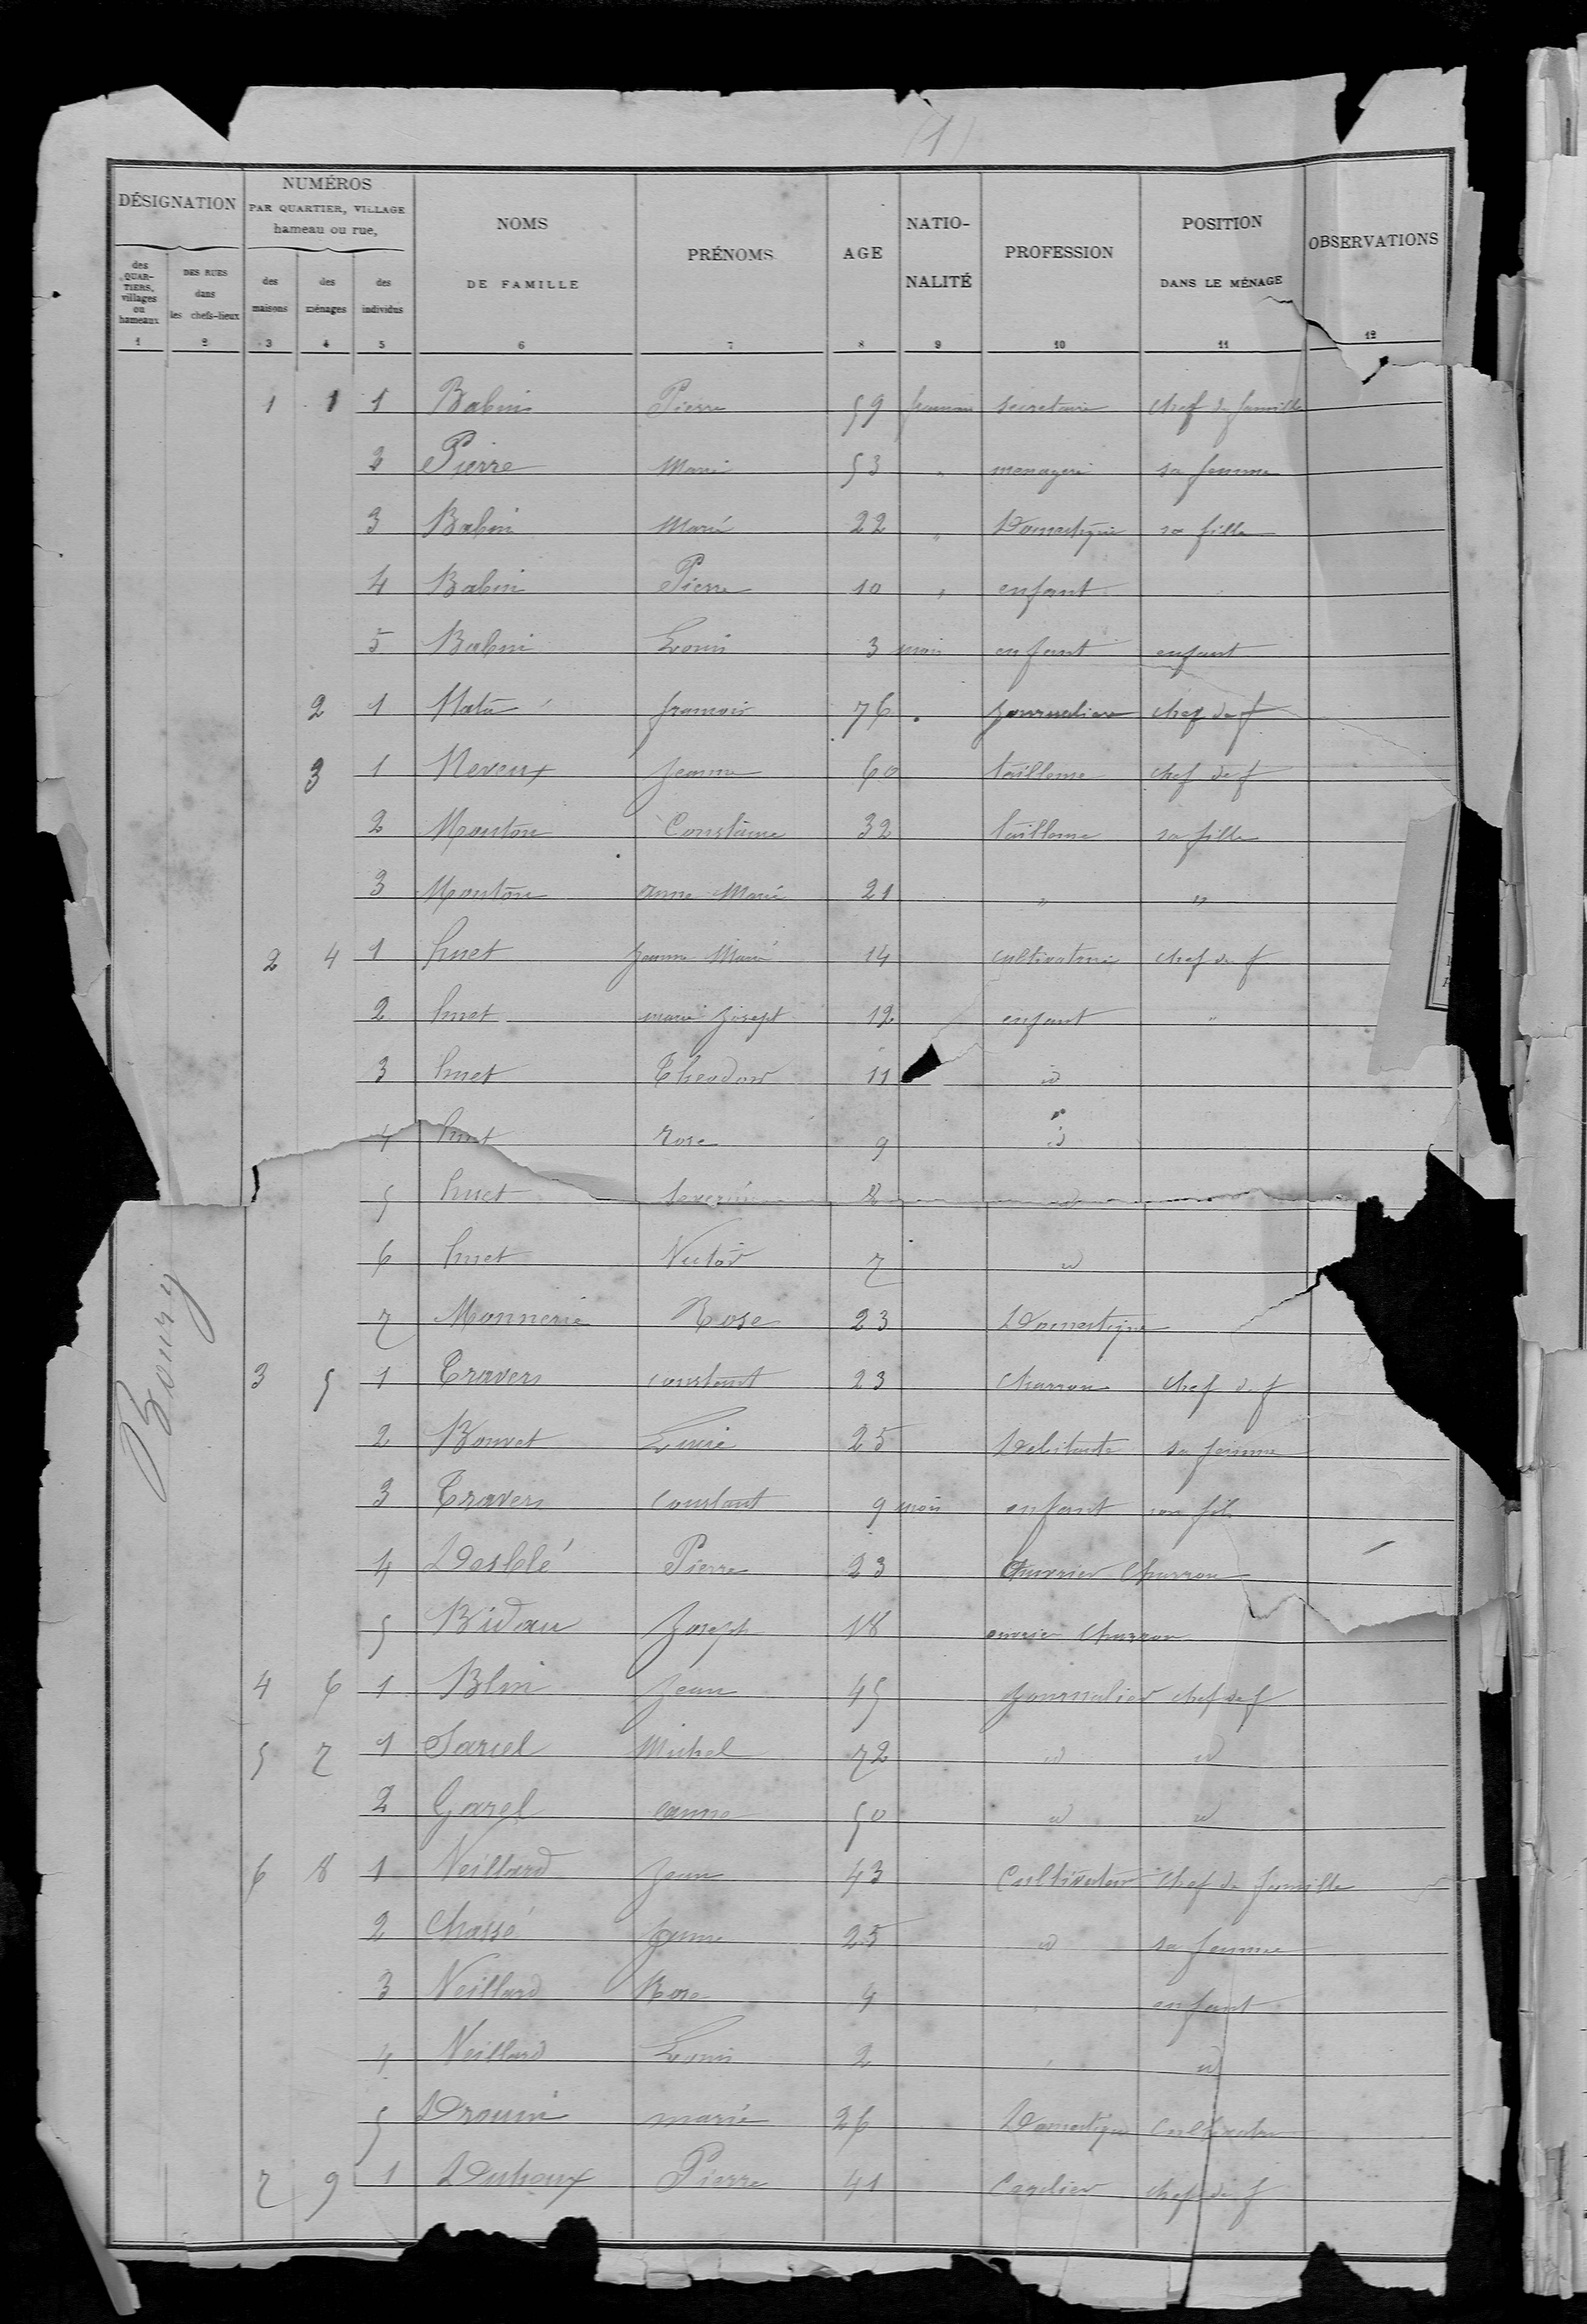 (1)
DÉSIGNATION NUMÉROS PAR QUARTIER, VILLAGE hameau ou rue, NOMS DE FAMILLE PRÉNOMS AGE NATIONALITÉ PROFESSION POSITION DANS LE MÉNAGE OBSERVATIONS
des QUARTIERS, villages ou hameaux DES RUES dans les chefs-lieux des maisons des ménages des individus
1 2 3 4 5 6 7 8 9 10 11 12
Bourg
1 1 1 Babin Pierre 59 francais secretaire chef de famille
2 Pierre Marie 53 " menagere sa femme
3 Babin Marie 22 " Domestique sa fille
4 Babin Pierre 10 " enfant
5 Babin Louis 3 mois enfant enfant
2 1 francois 76 " journalier chef de f
3 1 Neveux jeanne 60 tailleuse chef de f
2 Mouton Constance 32 tailleuse sa fille
3 Mouton anne Marie 21 " "
2 4 1 huet jeanne Marie 14 cultivatrice chef de f
2 huet marie joseph 12 enfant "
3 huet Theodore 11 id
4 huet rose 9 id
5 huet Severine 8 id
6 huet Victor 7 id
7 Monnerie Rose 23 Domestique
3 5 1 Travers constant 23 charron chef de f
2 Bouvet Lucie 25 Debitante sa femme
3 Travers constant 9 mois enfant son fils
4 Desblé Pierre 23 ouvrier charron
5 Bidau joseph 18 ouvrier charron
4 6 1 Blin jean 45 journalier chef de f
5 7 1 Sarcel Michel 72 id id
2 Garel anne 50 id id
6 8 1 Veillard jean 43 Cultivateur chef de famille
2 Chassé jeanne 25 id sa femme
3 Veillard Rose 4 " enfant
4 Veillard Louis 2 " id
5 Drouin marie 26 Domestique cultivateur
7 9 1 Duhoux Pierre 41 chef de f